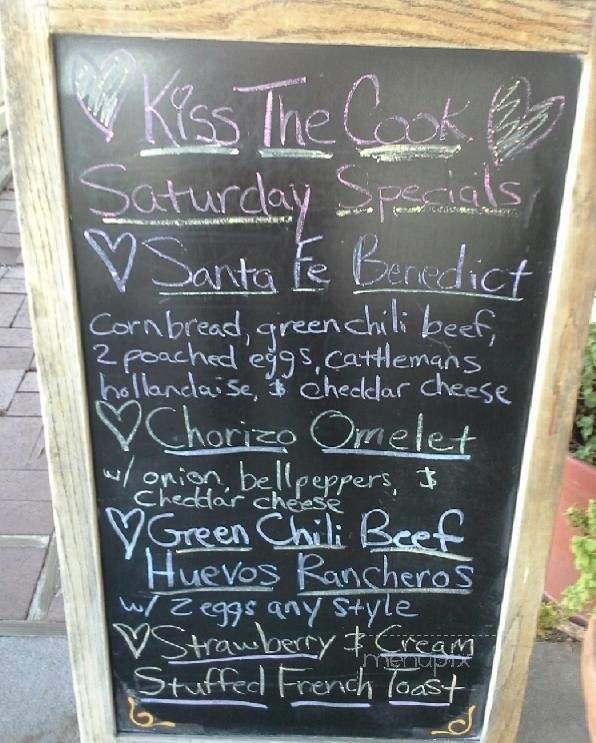 Kiss The Cook
Saturday Specials
Santa Fe Benedict
Cornbread, green chili beef,
2 poached eggs, cattlemans
hollandaise, & cheddar cheese
Chorizo Omelet
w/ onion, bell peppers, &
Cheddar cheese
Green Chili Beef
Huevos Rancheros
w/ 2 eggs any style
Strawberry & Cream
menupix
Stuffed French Toast